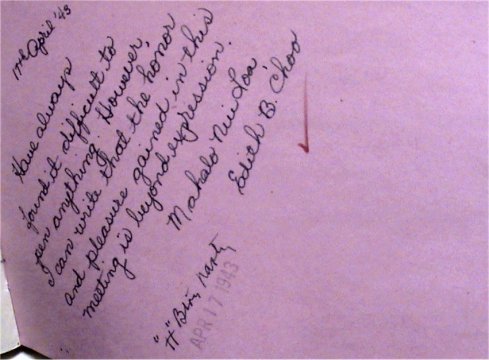 17th April '43
Have always
found it difficult to
pen anything. However,
I can write that the honor
and pleasure gained in this
meeting is beyond expression.
Mahalo Nui Loa,
Edith B. Choo
"H" Btry
APR 17 1943